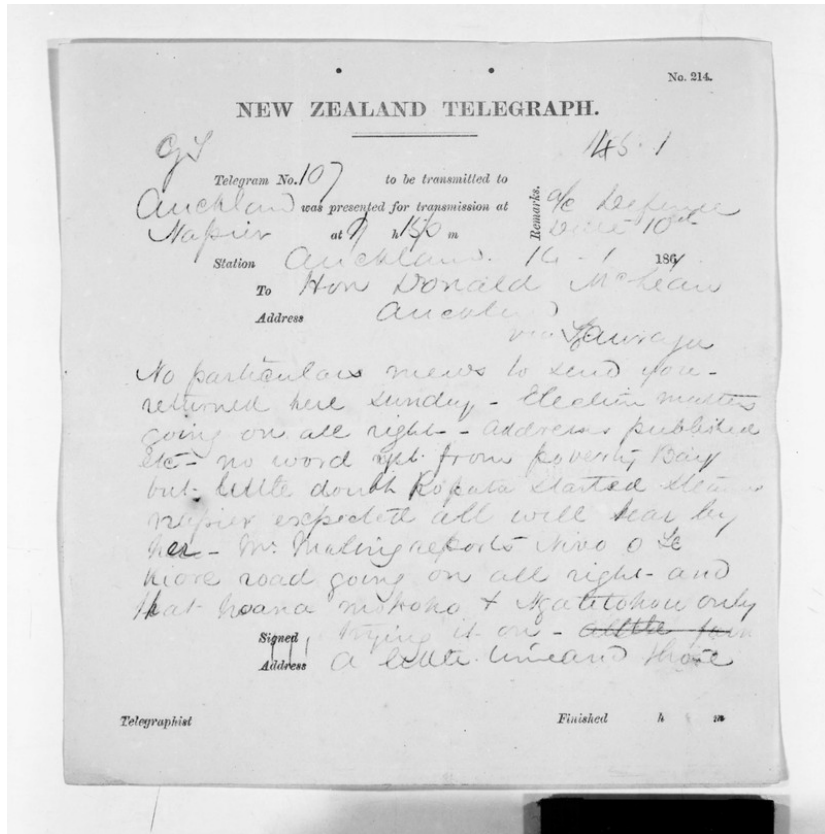 No. 214.
NEW ZEALAND TELEGRAPH.
Telegram No. 107 to be transmitted to
Auckland was presented for transmission at
Napier at 9 h m
Remarks. a/c Defence
Station Auckland. 14 - 1 187
To Hon Donald McLean
Address Auckland
via Tauranga
No particular news to send you -
returned here Sunday - Election matters
going on all right - addresses published
etc - no word yet from Poverty Bay
but little doubt Ropata started
Napier expected all will hear by
her - Mr Maling reports
road going on all right - and
that only
Signed trying it on -
Address A little time and those
Telegraphist Finished h m